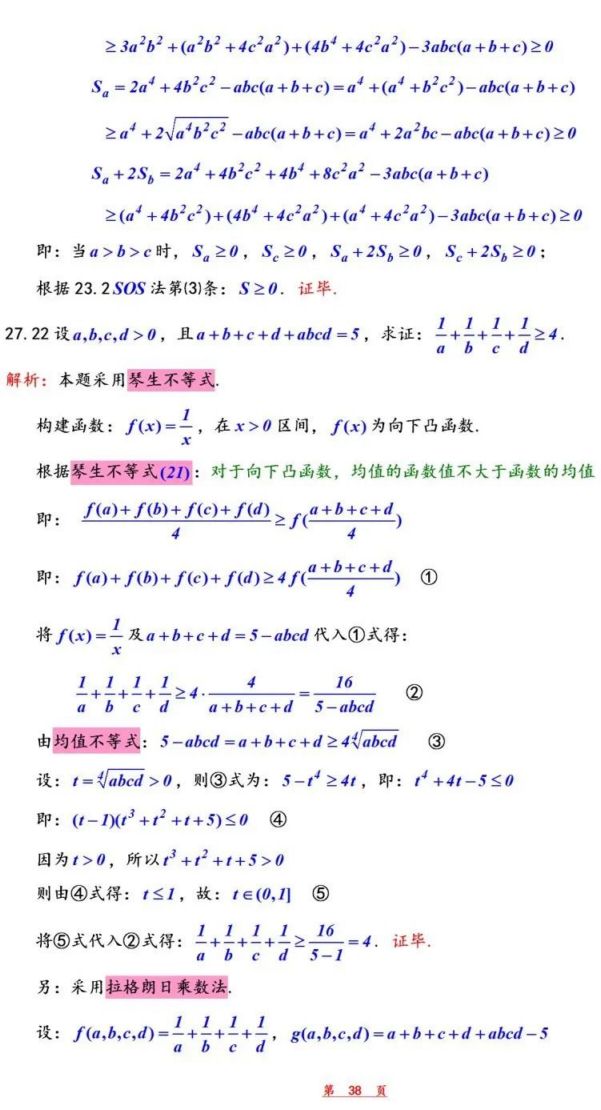 ≥ 3a²b² + (a²b² + 4c²a²) + (4b⁴ + 4c²a²) − 3abc(a + b + c) ≥ 0
Sₐ = 2a⁴ + 4b²c² − abc(a + b + c) = a⁴ + (a⁴ + b²c²) − abc(a + b + c)
≥ a⁴ + 2√(a⁴b²c²) − abc(a + b + c) = a⁴ + 2a²bc − abc(a + b + c) ≥ 0
Sₐ + 2S_b = 2a⁴ + 4b²c² + 4b⁴ + 8c²a² − 3abc(a + b + c)
≥ (a⁴ + 4b²c²) + (4b⁴ + 4c²a²) + (a⁴ + 4c²a²) − 3abc(a + b + c) ≥ 0
即：当 a > b > c 时，Sₐ ≥ 0，S_c ≥ 0，Sₐ + 2S_b ≥ 0，S_c + 2S_b ≥ 0；
根据 23.2 SOS 法第(3)条：S ≥ 0. 证毕.
27.22 设 a,b,c,d > 0，且 a + b + c + d + abcd = 5，求证：1/a + 1/b + 1/c + 1/d ≥ 4.
解析：本题采用琴生不等式.
构建函数：f(x) = 1/x，在 x > 0 区间，f(x) 为向下凸函数.
根据琴生不等式(21)：对于向下凸函数，均值的函数值不大于函数的均值
即：(f(a) + f(b) + f(c) + f(d))/4 ≥ f((a + b + c + d)/4)
即：f(a) + f(b) + f(c) + f(d) ≥ 4f((a + b + c + d)/4) ①
将 f(x) = 1/x 及 a + b + c + d = 5 − abcd 代入①式得：
1/a + 1/b + 1/c + 1/d ≥ 4 · 4/(a + b + c + d) = 16/(5 − abcd) ②
由均值不等式：5 − abcd = a + b + c + d ≥ 4∜abcd ③
设：t = ∜abcd > 0，则③式为：5 − t⁴ ≥ 4t，即：t⁴ + 4t − 5 ≤ 0
即：(t − 1)(t³ + t² + t + 5) ≤ 0 ④
因为 t > 0，所以 t³ + t² + t + 5 > 0
则由④式得：t ≤ 1，故：t ∈ (0,1] ⑤
将⑤式代入②式得：1/a + 1/b + 1/c + 1/d ≥ 16/(5 − 1) = 4. 证毕.
另：采用拉格朗日乘数法.
设：f(a,b,c,d) = 1/a + 1/b + 1/c + 1/d，g(a,b,c,d) = a + b + c + d + abcd − 5
第 38 页